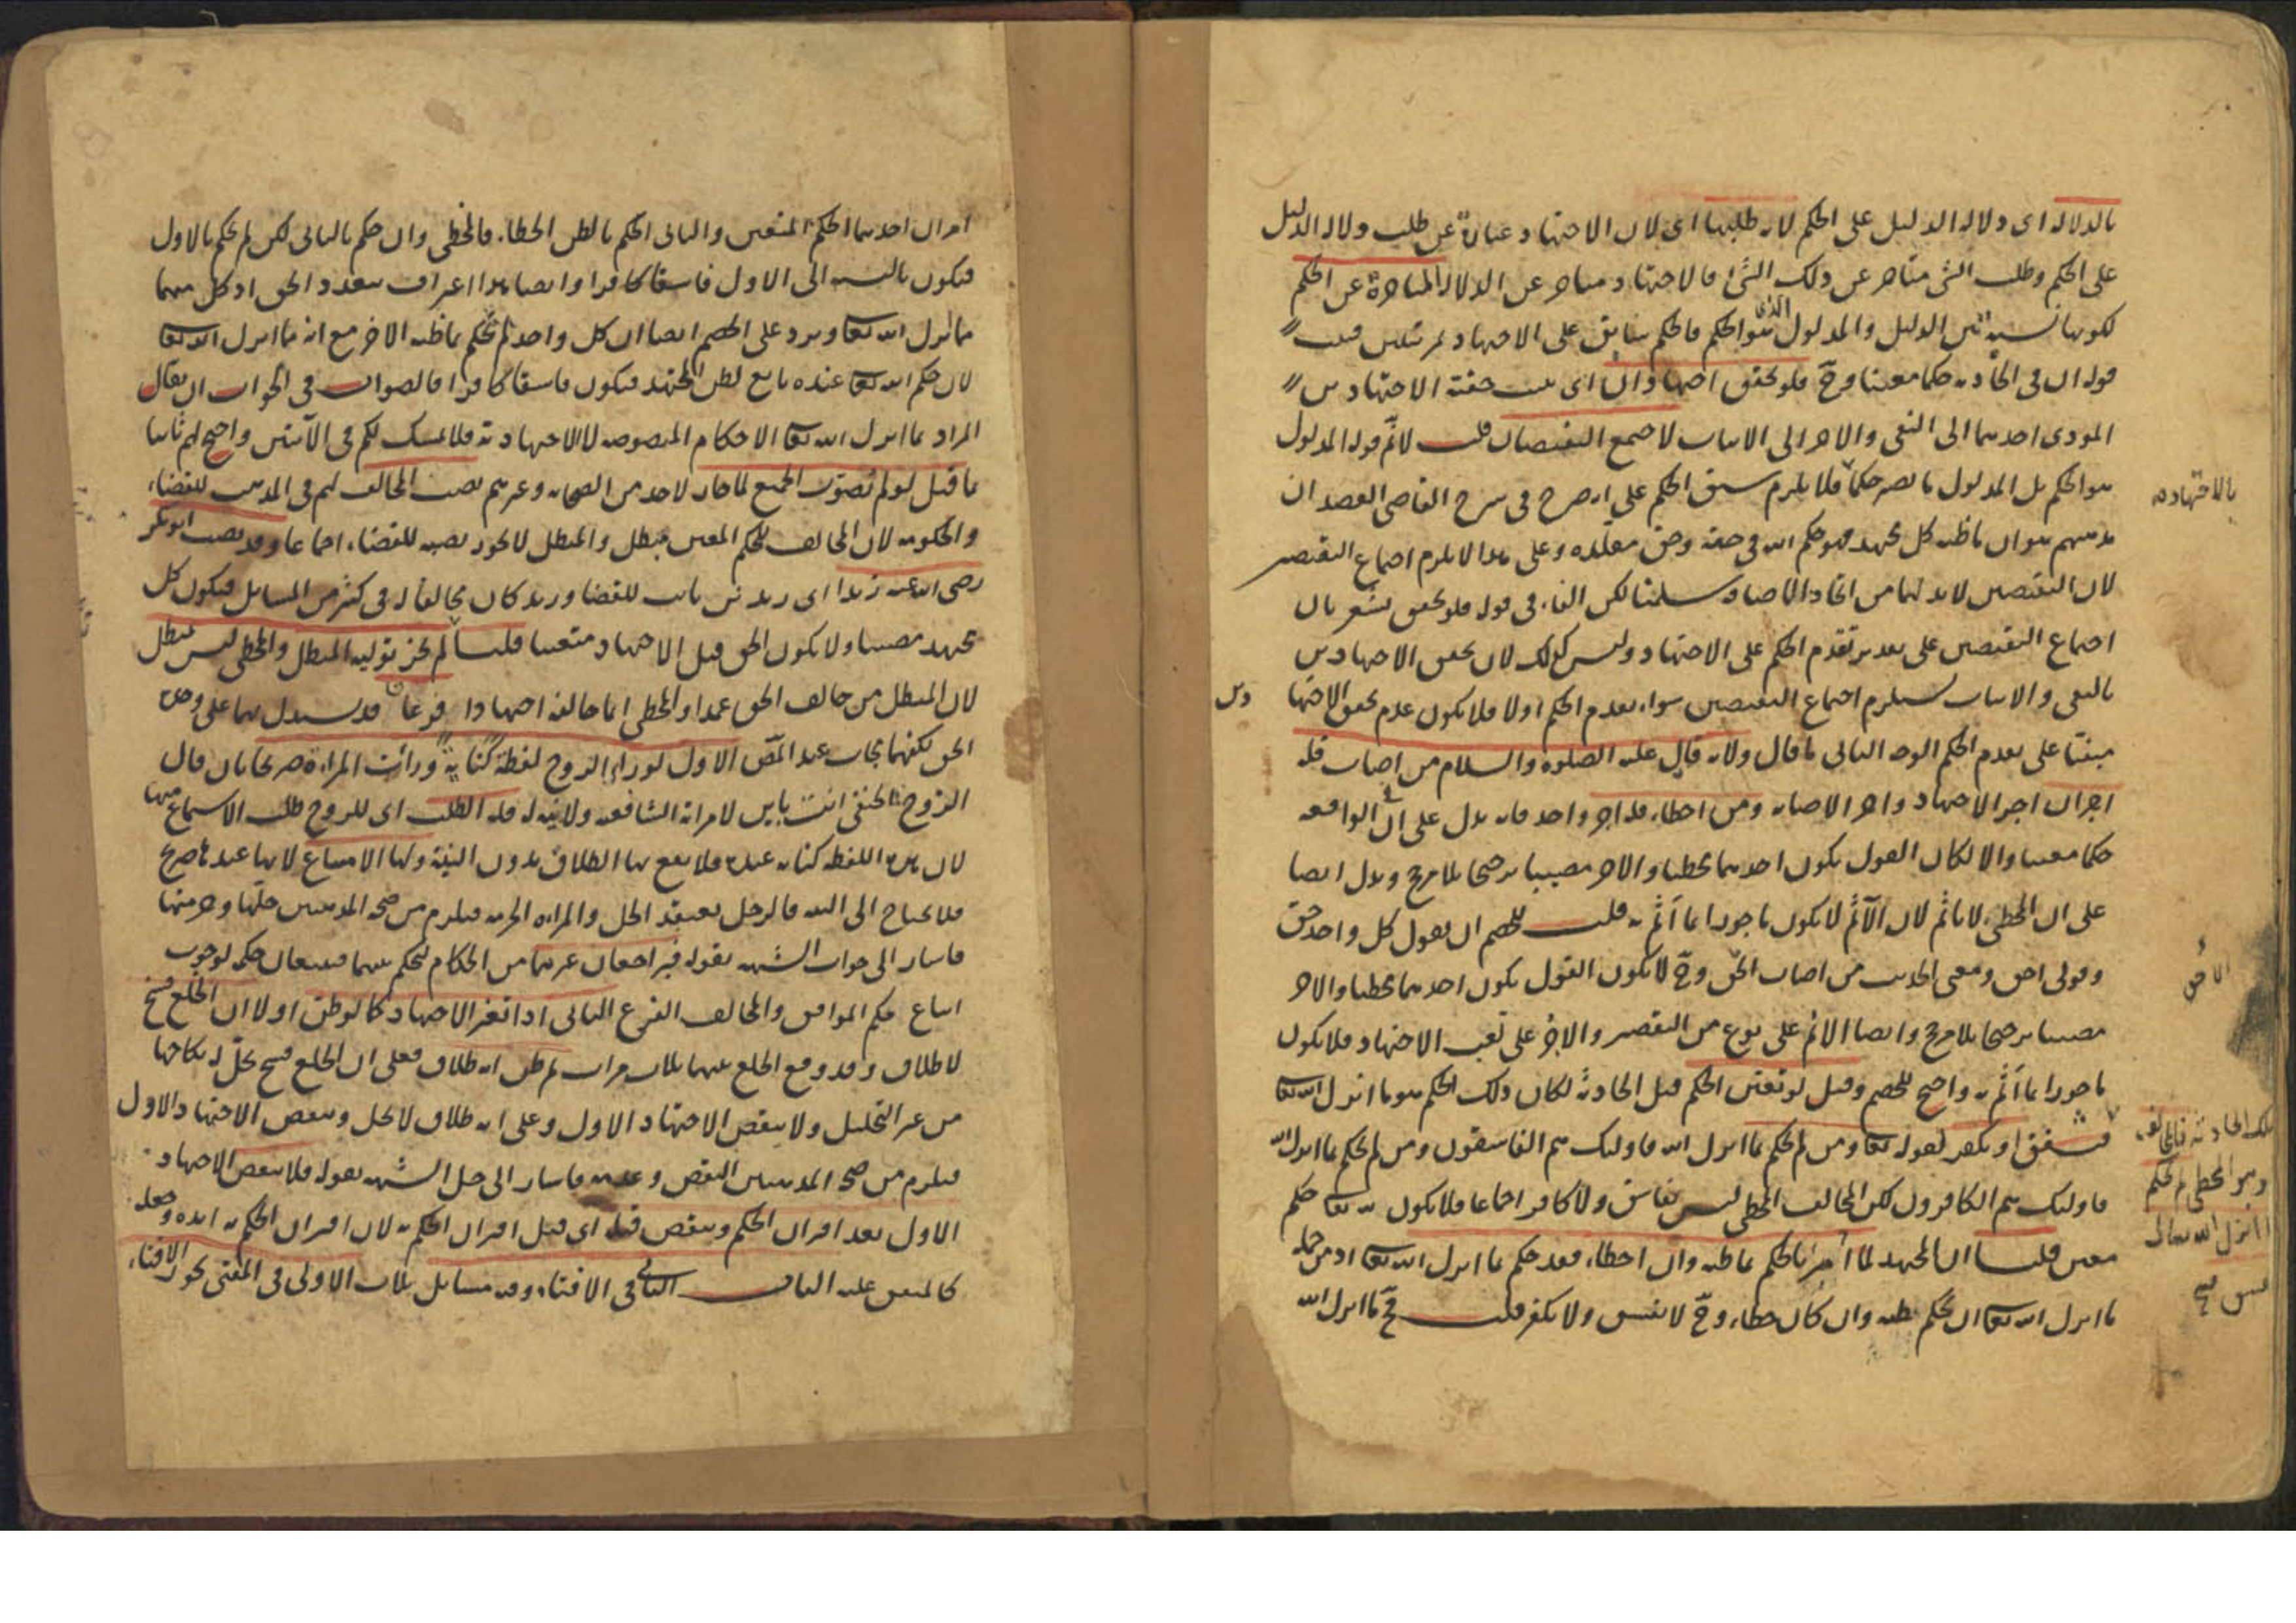 بالدلالة اى دلالة الدليل على الحكم لانه طلبها اى لان الاجتهاد عبارة عن طلب دلالة الدليل
على الحكم وطلب الشئ متأخر عن ذلك الشئ فالاجتهاد متأخر عن الدلالة المتأخرة عن الحكم
لكونها نسبة بين الدليل والمدلول الذى هو الحكم فالحكم سابق على الاجتهاد بمرتبتين
قوله ان فى الحادثة حكما معينا وح فلو تحقق اجتهادان اى حقية الاجتهادين
المودى احدهما الى النفى والاخر الى الاثبات لاجتمع النقيضان قلت لانم قوله المدلول
هو الحكم بل المدلول ما يصير حكما فلا يلزم سبق الحكم على انه صرح فى شرح القاضى العضد ان
مذهبهم هو ان ما ظنه كل مجتهد فهو حكم الله فى حقه وحق مقلده وعلى هذا لا يلزم اجتماع النقيضين
بالاجتهاد
لان النقيضين لابد لهما من اتحاد الاضافة سلمنا لكن الفاء فى قوله فلو تحقق تشعر بان
اجتماع النقيضين على تقدير تقدم الحكم على الاجتهاد وليس كذلك لان تحقق الاجتهادين
بالنفى والاثبات يستلزم اجتماع النقيضين سواء تقدم الحكم اولا فلا يكون عدم تحقق الاجتها
دين
مبنيا على تقدم الحكم الوجه الثانى ما قال ولانه قال عليه الصلوة والسلام من اصاب فله
اجران اجر الاجتهاد واجر الاصابة ومن اخطاء فله اجر واحد فانه يدل على ان فى الواقعة
حكما معينا والا لكان القول بكون احدهما مخطيا والاخر مصيبا ترجيحا بلا مرجح ويدل ايضا
على ان المخطى لا ياثم لان الآثم لا يكون ماجورا بما أثم به قلت للخصم ان يقول كل واحد حق
وقولى احق ومعنى الحديث من اصاب الحق وح لا يكون القول بكون احدهما مخطيا والاخر
مصيبا ترجيحا بلا مرجح وايضا الاثم على نوع من التقصير والاجر على تعب الاجتهاد فلا يكون
ماجورا بما أثم به واحتج الخصم وقيل لو تعين الحكم قبل الحادثة لكان ذلك الحكم هو ما انزل الله تعا
تلك الحادثة فالمخالف
وهو المخطى لم يحكم
ما انزل الله تعالى
فيفسق او يكفر لقوله تعا ومن لم يحكم بما انزل الله فاولئك هم الفاسقون ومن لم يحكم بما انزل الله
فاولئك هم الكافرون لكن المخالف المخطى ليس بفاسق ولا كافر اجماعا فلا يكون لله تعا حكم
معين قلنا ان المجتهد لما أمر بالحكم بما ظنه وان اخطاء فقد حكم بما انزل الله تعا اذ من جملة
ما انزل الله تعا ان يحكم بظنه وان كان خطاء وح لا يفسق ولا يكفر قلت فح ما انزل الله
امران احدهما الحكم المتعين والثانى الحكم بالظن الخطاء فالمخطى وان حكم بالثانى لكن لم يحكم بالاول
فيكون بالنسبة الى الاول فاسقا كافرا وايضا هذا اعتراف بتعدد الحق اذ كل منهما
ما نزل الله تعا ويرد على الخصم ايضا ان كل واحد لم يحكم بما ظنه الاخر مع انه مما انزل الله تعا
لان حكم الله تعا عنده تابع لظن المجتهد فيكون فاسقا كافرا فالصواب فى الجواب ان يقال
المراد بما انزل الله تعا الاحكام المنصوصة لا الاجتهادية فلا تمسك لكم فى الآيتين واحتج لهم ثانيا
ما قيل لو لم تصوب الجميع لما جاز لاحد من الصحابة وغيرهم نصب المخالف لهم فى المذهب للقضاء
والحكومة لان المخالف للحكم المعين مبطل والمبطل لا يجوز نصبه للقضاء اجماعا وقد نصب ابو بكر
رضى الله عنه زيدا اى زيد بن ثابت للقضا وزيد كان مخالفا له فى كثير من المسايل فيكون كل
مجتهد مصيبا ولا يكون الحق قبل الاجتهاد متعينا قلنا لم يجز تولية المبطل والمخطى ليس بمبطل
لان المبطل من خالف الحق عمدا والمخطى انما خالفه اجتهادا فرعان قد يستدل بهما على
الحق عند المص الاول لو راى الزوج لفظة كناية ورأت المراة صريحا بان قال
الزوج الحنفى انت باين لامراته الشافعية ولا نية له فله الطلب اى للزوج طلب الاستمتاع منها
لان هذه اللفظة كناية عنده فلا يقع بها الطلاق بدون النية ولها الامتناع لانها عندها صريح
فلا يحتاج الى النية فالرجل يعتقد الحل والمراة الحرمة فيلزم من صحة المذهبين حلها وحرمتها
فاشار الى جواب الشبهة بقوله فيراجعان غيرهما من الحكام ليحكم بينهما فيتبعان حكمه لوجوب
اتباع حكم الموافق والمخالف الفرع الثانى اذا تغير الاجتهاد كما لو ظن اولا ان الخلع فسخ
لا طلاق وقد وقع الخلع بينهما ثلاث مرات ثم ظن انه طلاق فعلى ان الخلع فسخ يحل له نكاحها
من غير التحليل ولا ينقض الاجتهاد الاول وعلى انه طلاق لا يحل وينقض الاجتهاد الاول
فيلزم من صحة المذهبين النقض وعدمه فاشار الى حل الشبهة بقوله فلا ينقض الاجتهاد
الاول بعد اقتران الحكم وينقض قبله اى قبل اقتران الحكم به لان اقتران الحكم به ايده وجعله
كالمتعين عليه الباب الثانى فى الافتاء وفيه مسايل ثلاث الاولى فى المفتى يجوز الافتاء